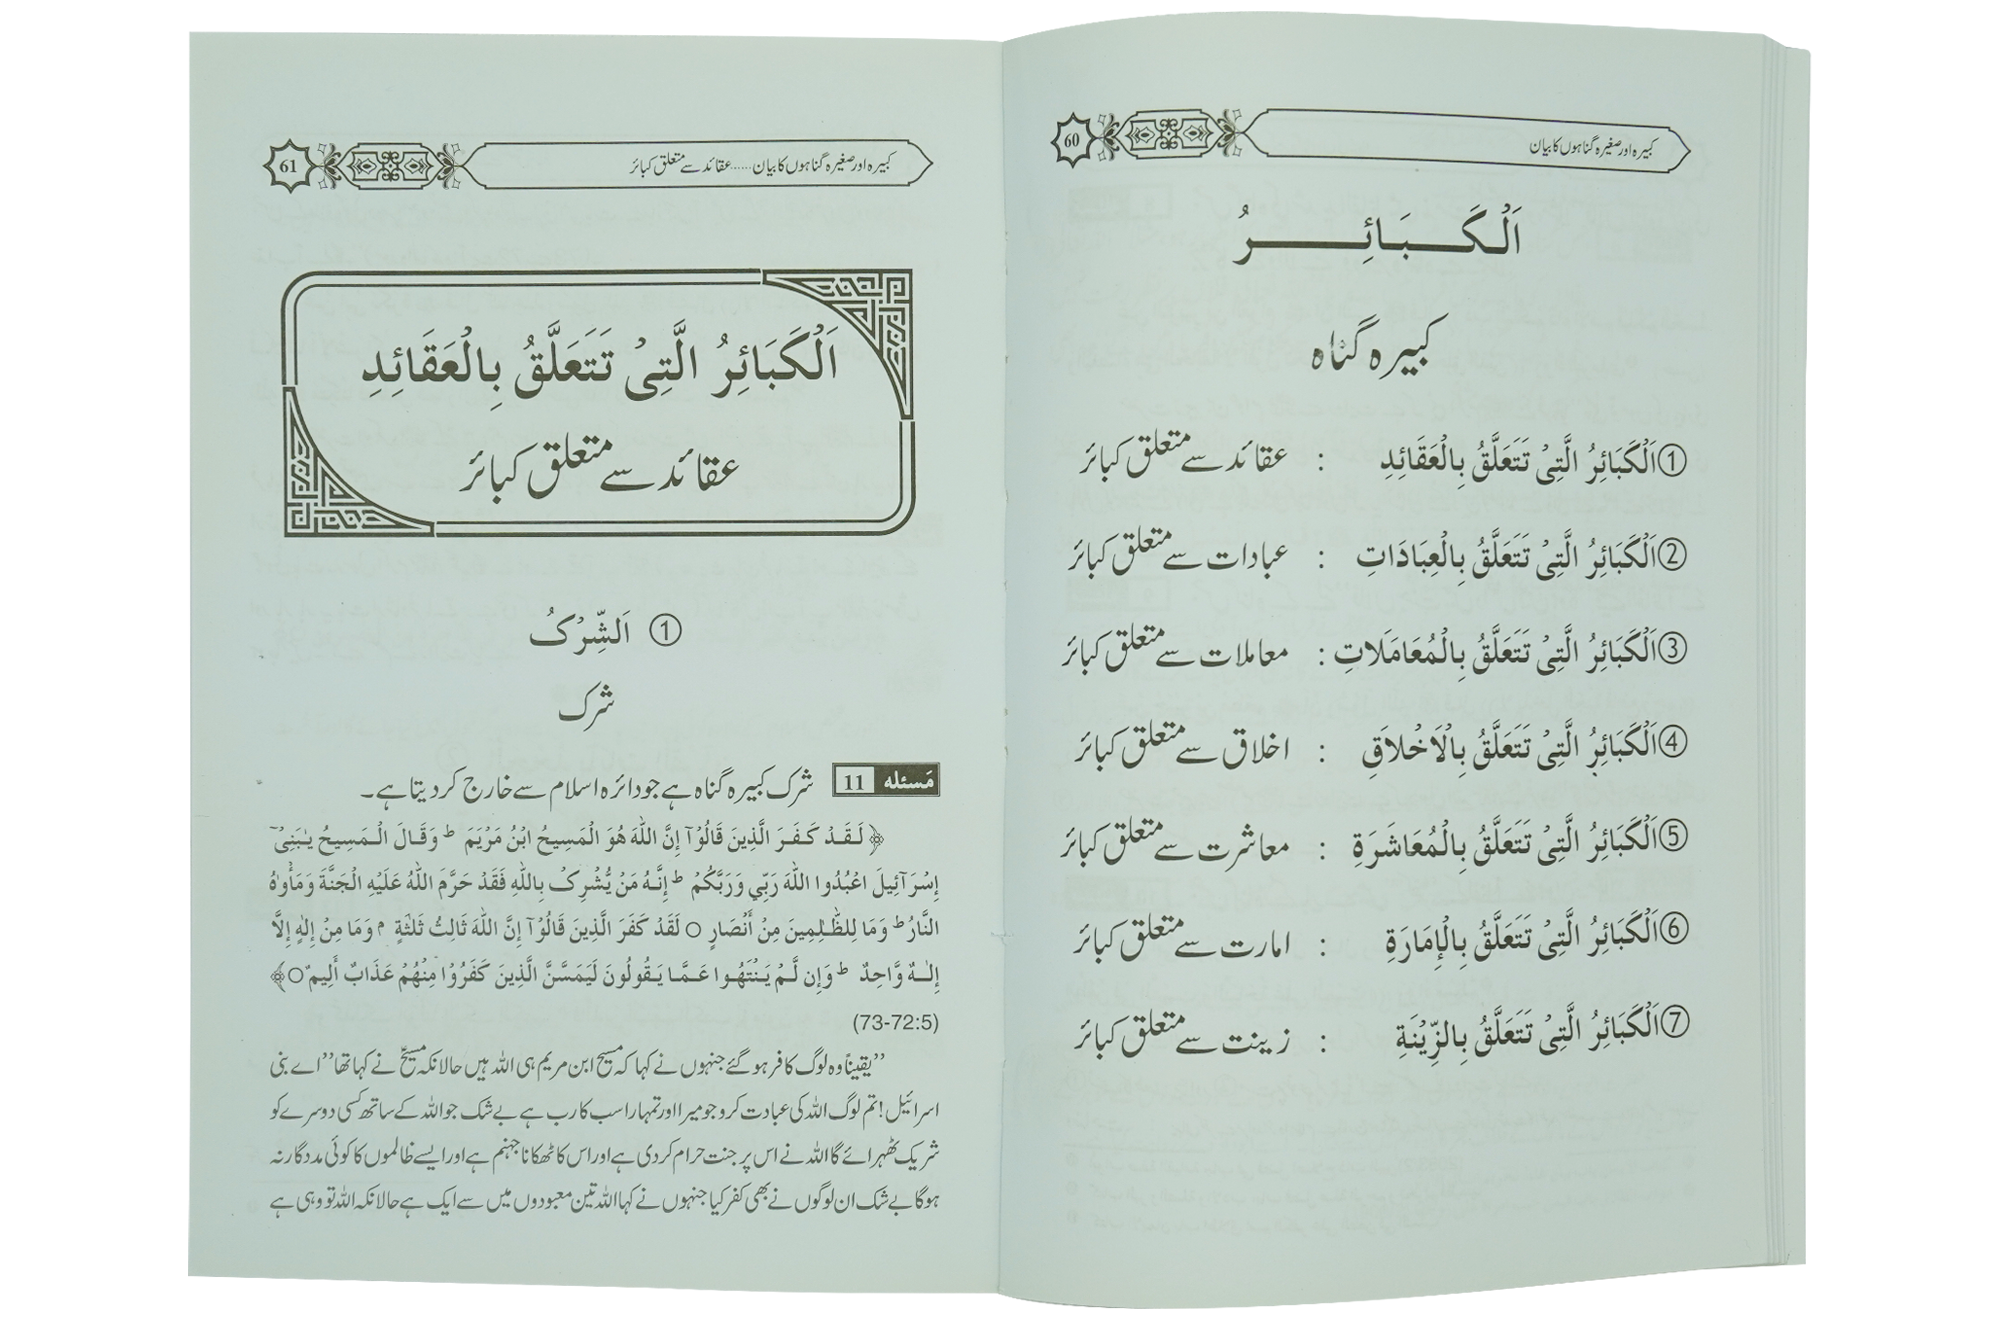 کبیرہ اور صغیرہ گناہوں کا بیان
60
اَلْکَبَائِرُ
کبیرہ گناہ
① اَلْکَبَائِرُ الَّتِیْ تَتَعَلَّقُ بِالْعَقَائِدِ : عقائد سے متعلق کبائر
② اَلْکَبَائِرُ الَّتِیْ تَتَعَلَّقُ بِالْعِبَادَاتِ : عبادات سے متعلق کبائر
③ اَلْکَبَائِرُ الَّتِیْ تَتَعَلَّقُ بِالْمُعَامَلَاتِ : معاملات سے متعلق کبائر
④ اَلْکَبَائِرُ الَّتِیْ تَتَعَلَّقُ بِالْاَخْلَاقِ : اخلاق سے متعلق کبائر
⑤ اَلْکَبَائِرُ الَّتِیْ تَتَعَلَّقُ بِالْمُعَاشَرَةِ : معاشرت سے متعلق کبائر
⑥ اَلْکَبَائِرُ الَّتِیْ تَتَعَلَّقُ بِالْإِمَارَةِ : امارت سے متعلق کبائر
⑦ اَلْکَبَائِرُ الَّتِیْ تَتَعَلَّقُ بِالزِّیْنَةِ : زینت سے متعلق کبائر
کبیرہ اور صغیرہ گناہوں کا بیان......عقائد سے متعلق کبائر
61
اَلْکَبَائِرُ الَّتِیْ تَتَعَلَّقُ بِالْعَقَائِدِ
عقائد سے متعلق کبائر
① اَلشِّرْکُ
شرک
مَسئله 11 شرک کبیرہ گناہ ہے جو دائرہ اسلام سے خارج کر دیتا ہے۔
﴿ لَقَدْ کَفَرَ الَّذِینَ قَالُوْآ إِنَّ اللّٰهَ هُوَ الْمَسِیحُ ابْنُ مَرْیَمَ ط وَقَالَ الْمَسِیحُ یٰبَنِیْٓ
إِسْرَآئِیلَ اعْبُدُوا اللّٰهَ رَبِّي وَرَبَّکُمْ ط إِنَّهُ مَنْ یُّشْرِکْ بِاللّٰهِ فَقَدْ حَرَّمَ اللّٰهُ عَلَیْهِ الْجَنَّةَ وَمَأْوٰهُ
النَّارُ ط وَمَا لِلظّٰلِمِینَ مِنْ أَنْصَارٍ ○ لَقَدْ کَفَرَ الَّذِینَ قَالُوْآ إِنَّ اللّٰهَ ثَالِثُ ثَلٰثَةٍ م وَمَا مِنْ إِلٰهٍ إِلَّا
إِلٰهٌ وَّاحِدٌ ط وَإِن لَّمْ یَنْتَهُوا عَمَّا یَقُولُونَ لَیَمَسَّنَّ الَّذِینَ کَفَرُوْا مِنْهُمْ عَذَابٌ أَلِیمٌ○﴾
(73-72:5)
”یقیناً وہ لوگ کافر ہو گئے جنہوں نے کہا کہ مسیح ابن مریم ہی اللہ ہیں حالانکہ مسیح نے کہا تھا ”اے بنی
اسرائیل! تم لوگ اللہ کی عبادت کرو جو میرا اور تمہارا سب کا رب ہے بے شک جو اللہ کے ساتھ کسی دوسرے کو
شریک ٹھہرائے گا اللہ نے اس پر جنت حرام کر دی ہے اور اس کا ٹھکانا جہنم ہے اور ایسے ظالموں کا کوئی مددگار نہ
ہوگا بے شک ان لوگوں نے بھی کفر کیا جنہوں نے کہا اللہ تین معبودوں میں سے ایک ہے حالانکہ اللہ تو وہی ہے